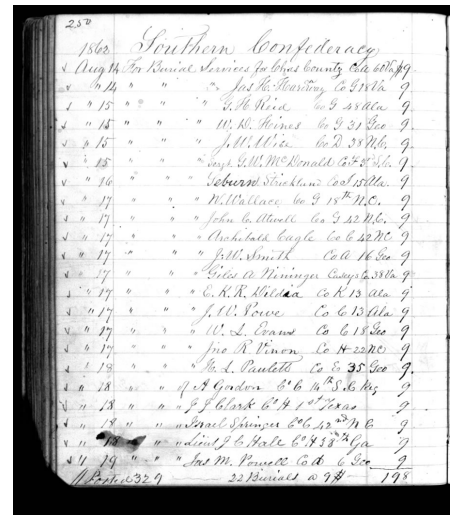 250
1862 Southern Confederacy
✓ Aug 14 For Burial Services for Chas County Co A 60 Va 9
✓ " 14 " " " Jas H. Hardway Co G 18 Va 9
✓ " 15 " " " G. H. Reid Co G 48 Ala 9
✓ " 15 " " " W. D. Hines Co G 31 Geo 9
✓ " 15 " " " J. W. Co D 38 N.C. 9
✓ " 15 " " " Sergt G. W. McDonald Co F S.C. 9
✓ " 16 " " " Geburn Strickland Co I 15 Ala. 9
✓ " 17 " " " W. Wallace Co G 18th N.C. 9
✓ " 17 " " " John C. Atwell Co G 42 N.C. 9
✓ " 17 " " " Archibald Cagle Co C 42 NC 9
✓ " 17 " " " J. W. Smith Co A 16 Geo 9
✓ " 17 " " " Giles A Nininger Caseys Co. 38 Va 9
✓ " 17 " " " E. K. R. Co K 13 Ala 9
✓ " 17 " " " J. W. Powe Co C 13 Ala 9
✓ " 17 " " " W. L. Evans Co C 18 Geo 9
✓ " 17 " " " Jno R Vinon Co H 22 NC 9
✓ " 18 " " " H. L. Paulett Co E 35 Geo 9
✓ " 18 " " of A Gordon Co C 14th S. C. 9
✓ " 18 " " " J J Clark Co H 1st Texas 9
✓ " 18 " " " Israel Springer Co C 42nd N C 9
✓ " 18 " " " Lieut J. C Hale Co H Ga 9
✓ " 19 " " " Jas M. Powell Co d 6 Geo 9
Posted 329 22 Burials @ 9 198